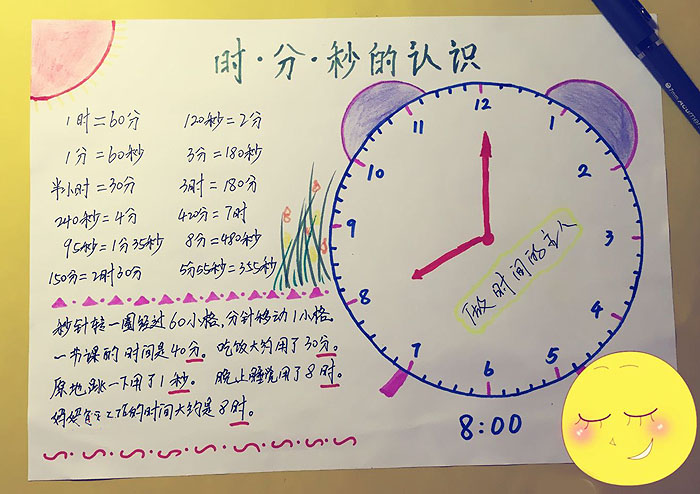 时·分·秒的认识
1时=60分 120秒=2分
1分=60秒 3分=180秒
半小时=30分 3时=180分
240秒=4分 420分=7时
95秒=1分35秒 8分=480秒
150分=2时30分 5分55秒=355秒
秒针转一圈经过60小格,分针移动1小格。
一节课的时间是40分。吃饭大约用了30分。
原地跳一下用了1秒。 晚上睡觉用了8时。
妈妈每天工作的时间大约是8时。
12
1
2
3
4
5
6
7
8
9
10
11
做时间的主人
8:00